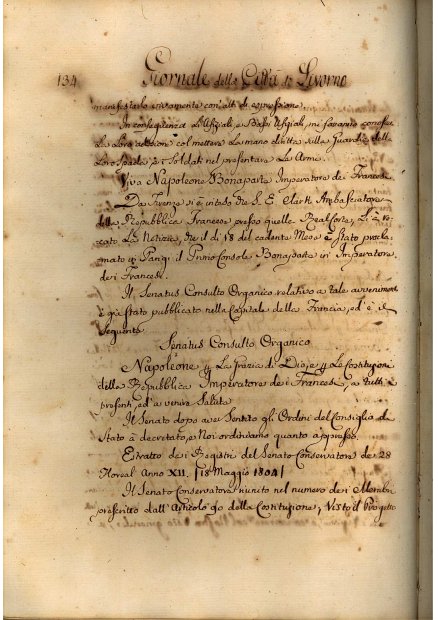 134 Giornale della Città di Livorno
manifestarlo vivamente con atti di espressione.
In conseguenza Uffiziali, e Bassi Uffiziali, mi faranno conoscere
La Loro adesione col mettere La mano dritta sulla Guardia della
Loro Spada, e i Soldati nel presentare Le Armi.
Viva Napoleone Bonaparte Imperatore dei Francesi
Da Firenze si è inteso Che S. E. Clark Ambasciatore
della Repubblica Francese presso quella Real Corte,
cato La Notizia, che il dì 18 del cadente Mese è stato procla=
mato in Parigi il Primo Console Bonaparte in Imperatore
dei Francesi.
Il Senatus Consulto Organico relativo a tale avvenimento
è già stato pubblicato nella Capitale della Francia, ed è il
Seguente
Senatus Consulto Organico
Napoleone La Grazia di Dio, e Le Costituzioni
della Repubblica Imperatore dei Francesi, a tutti i
presenti, ed a venire Salute
Il Senato dopo aver Sentito gli Ordini del Consiglio di
Stato à decretato, e Noi ordiniamo quanto appresso.
Estratto dei Registri del Senato Conservatore de 28
Floreal Anno XII. [18 Maggio 1804]
Il Senato Conservatore riunito nel numero dei Membri
prescritto dall'Articolo 90 della Costituzione, Visto il Progetto